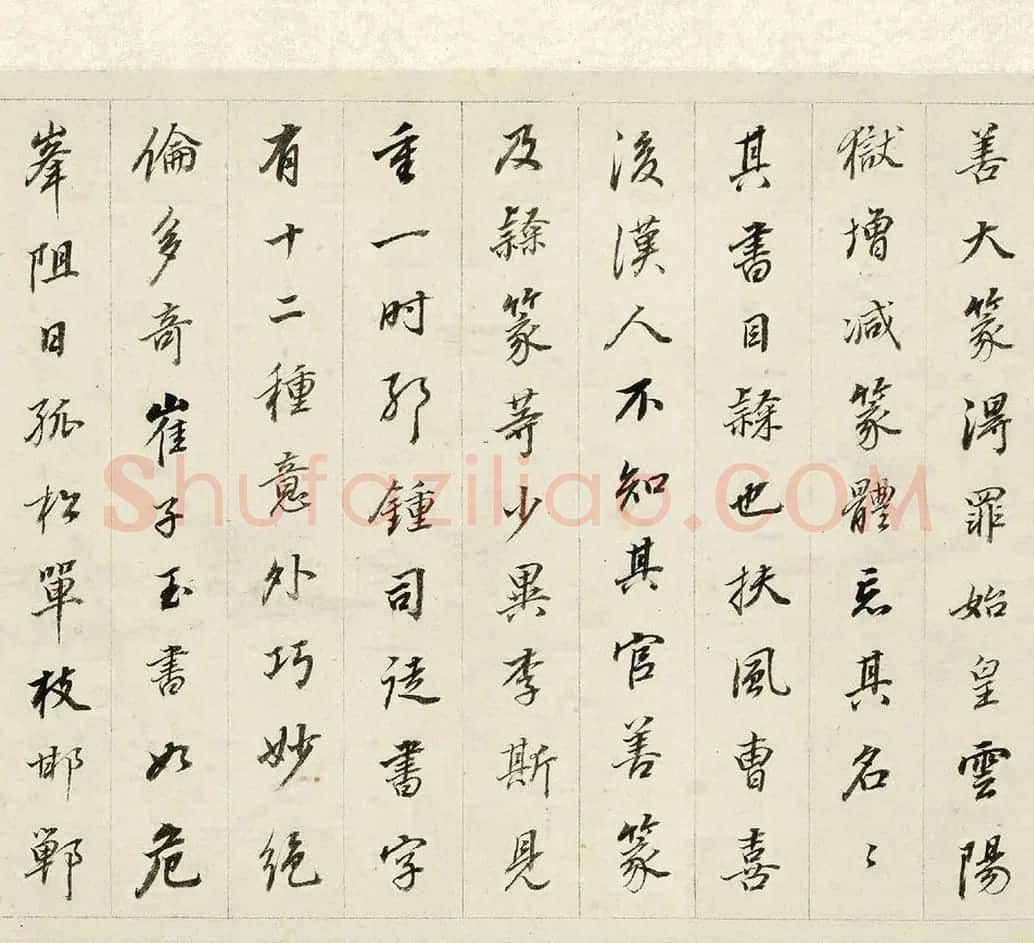 善大篆得罪始皇雲陽
獄增减篆體去其名〻
其書目隸也扶風曹喜
後漢人不知其官善篆
及隸篆等少異李斯見
重一时邪鍾司徒書字
有十二種意外巧妙絶
倫多奇崔子玉書如危
峯阻日孤松單枝邯鄲
Shufaziliao.com